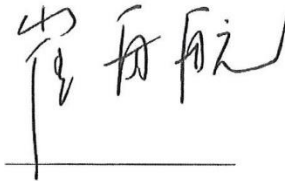 崔舟航